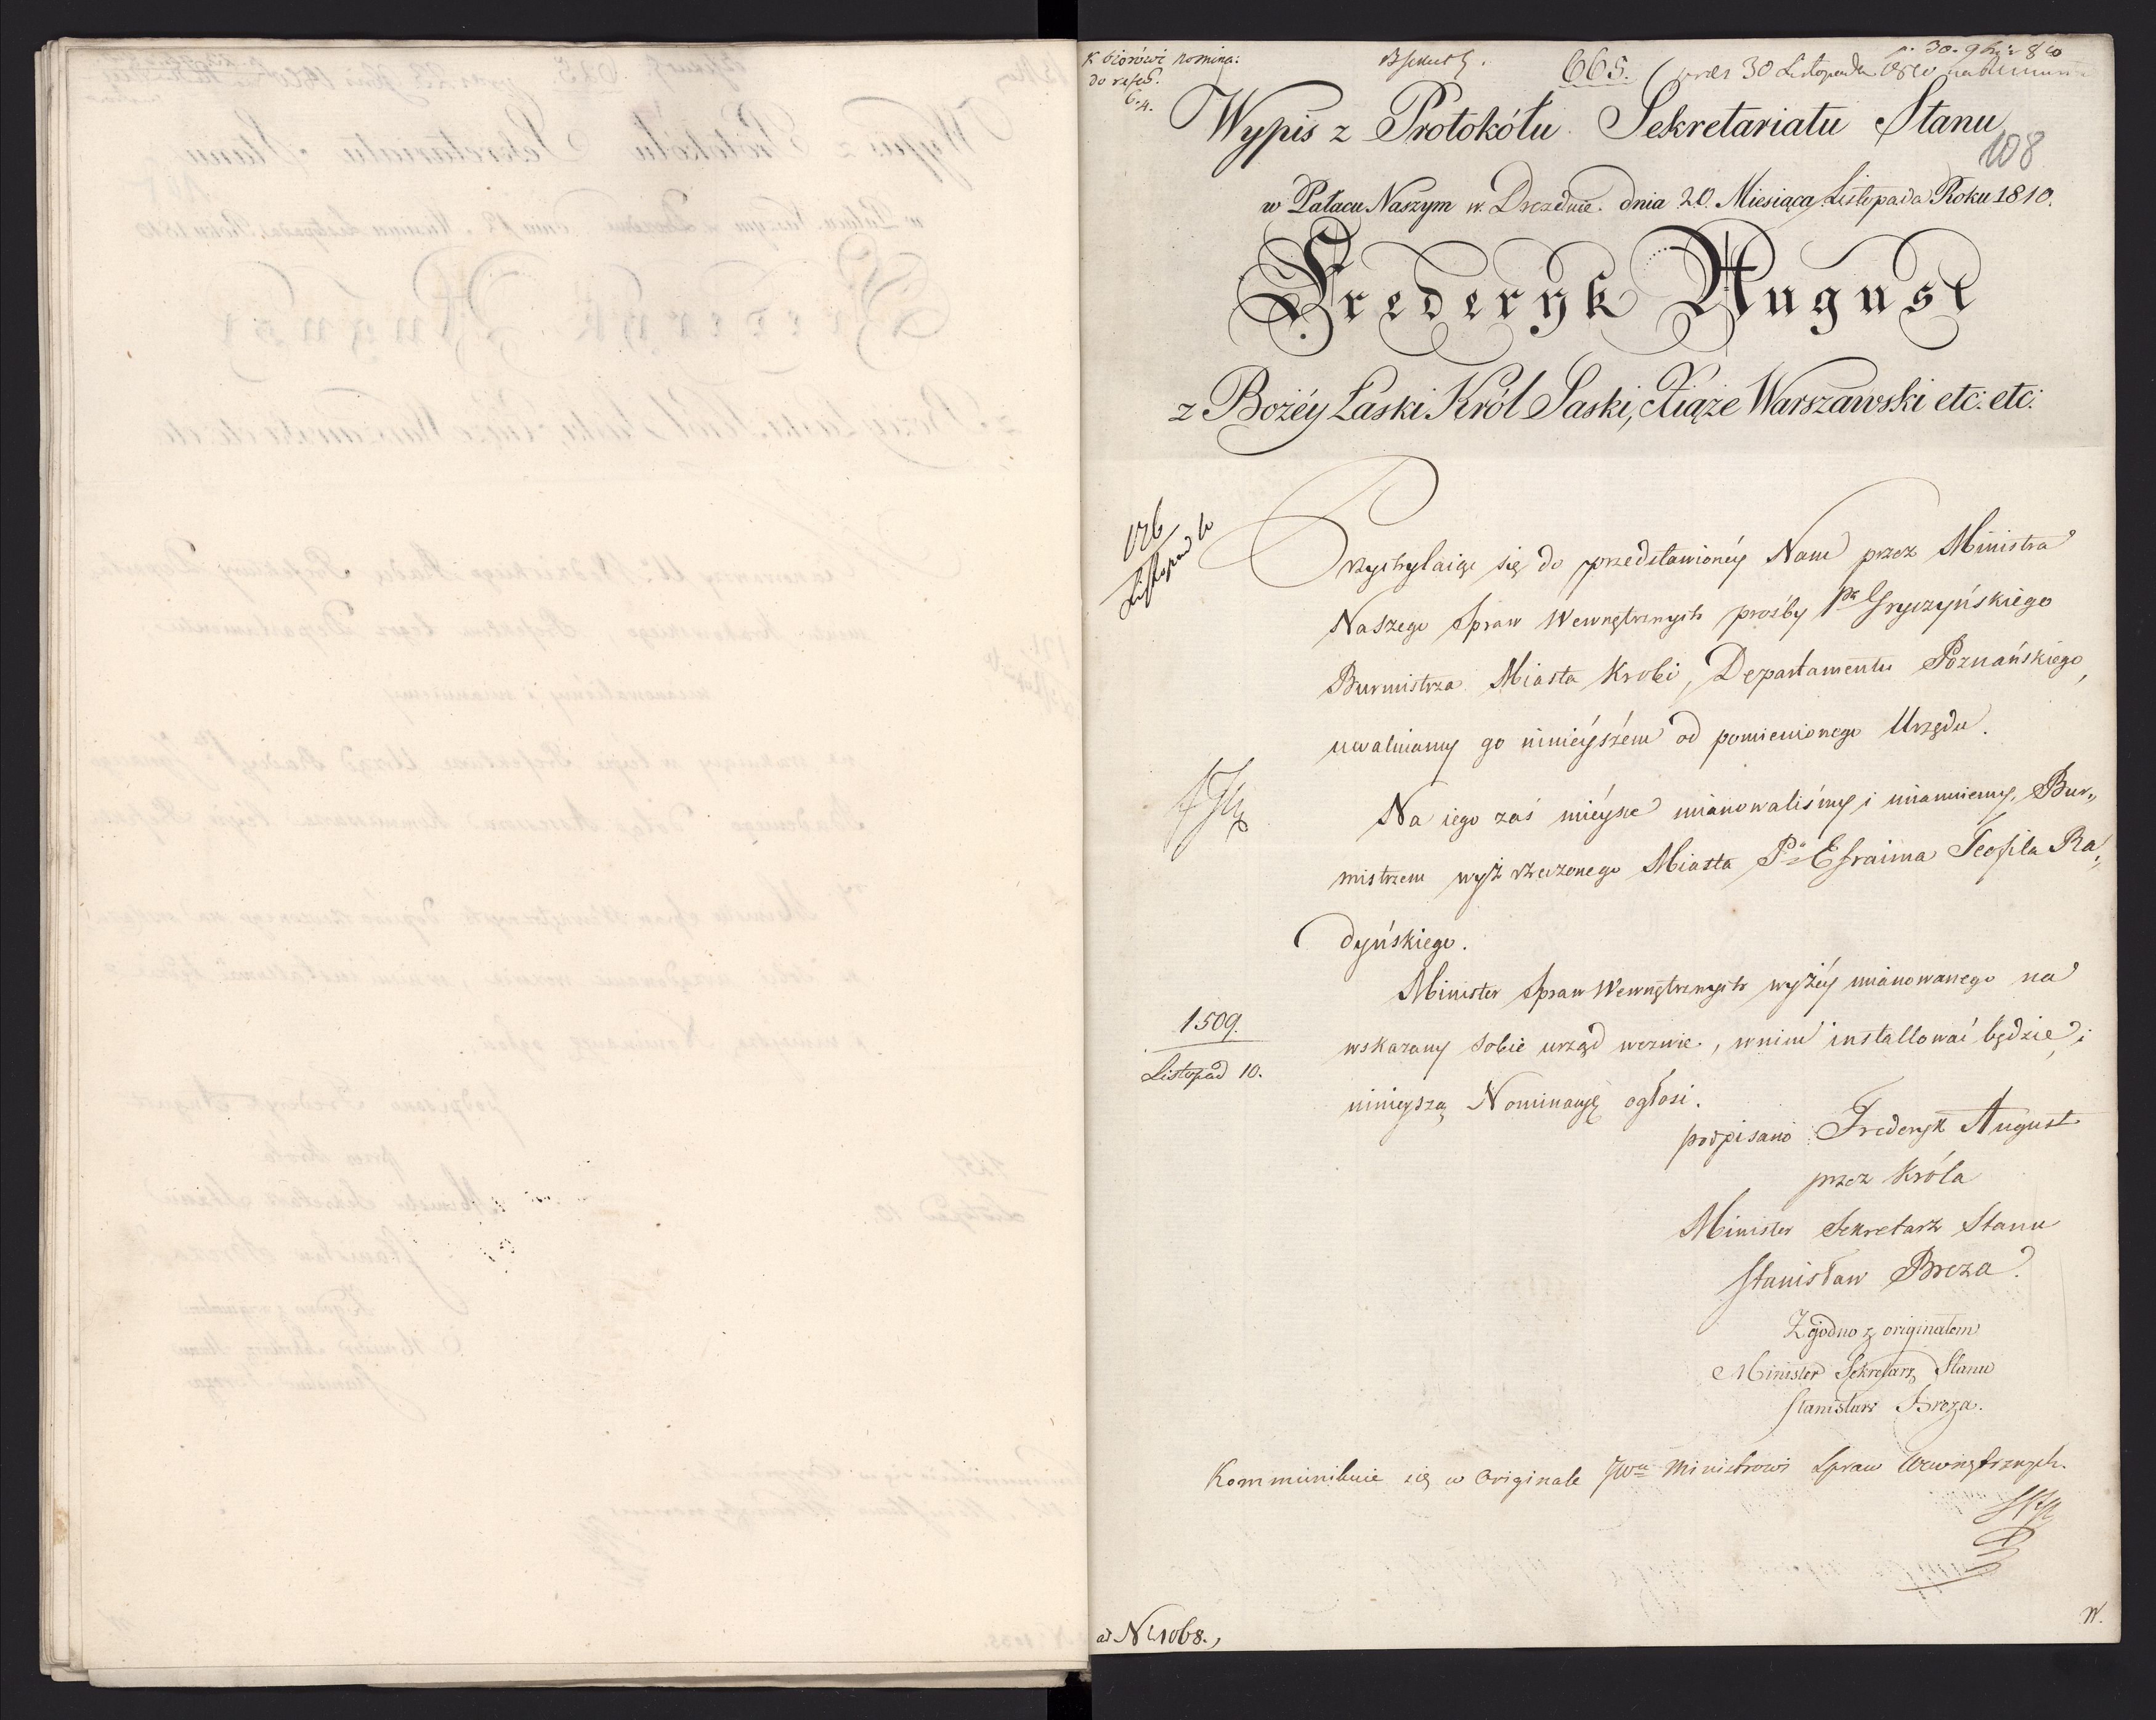 K zbiorówi nomina:
do refer.
C. 4.
665.
30 Listopada
Wypis z Protokółu Sekretariatu Stanu
108
w Pałacu Naszym w Dreznie dnia 20. Miesiąca Listopada Roku 1810.
Fryderyk August
z Bożéy Łaski Król Saski, Xiąże Warszawski etc: etc:
126
Listopad 10
Przychylaiąc się do przedstawionéy Nam przez Ministra
Naszego Spraw Wewnętrznych prośby Pa Gryczyńskiego
Burmistrza Miasta Krobi, Departamentu Poznańskiego,
uwalniamy go ninieyszém od pomienionego Urzędu.
Na iego zaś mieysce mianowaliśmy i mianuiemy, Bur„
mistrzem wyż rzeczonego Miasta Pa Efraima Teofila Ra„
dyńskiego.
Minister Spraw Wewnętrznych wyżéy mianowanego na
wskazany sobie urząd wezwie, w nim installować będzie, i
ninieyszą Nominacyę ogłosi.
1509.
Listopad 10.
podpisano Frederyk August
przez Króla
Minister Sekretarz Stanu
Stanisław Breza.
Zgodno z originałem
Minister Sekretarz Stanu
Stanisław Breza.
Kommunikuie się w Originale JWu Ministrowi Spraw Wewnętrznych.
ad N 1068.,
W.